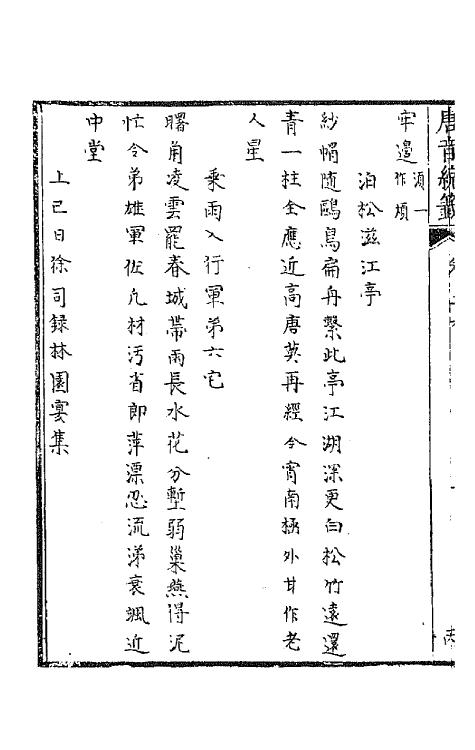 唐音統籤
牢邊須一作頃
泊松滋江亭
紗㡌隨鷗鳥扁舟繫此亭江湖深更白松竹遠還
青一柱全應近高唐莫再經今宵南極外甘作老
人星
乘雨入行軍弟六宅
曙角凌雲罷春城帶雨長水花分塹弱巢燕得泥
忙令弟雄軍佐凡材汚省郎萍漂忍流涕衰颯近
中堂
上巳日徐司録林園宴集